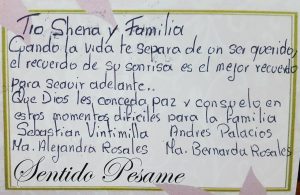 Tio Shena y Familia
Cuando la vida te separa de un ser querido,
el recuerdo de su sonrisa es el mejor recuerdo
para seguir adelante..
Que Dios les conceda paz y consuelo en
estos momentos dificiles para la familia
Sebastian Vintimilla Andres Palacios
Ma. Alejandra Rosales Ma. Bernarda Rosales
Sentido Pesame